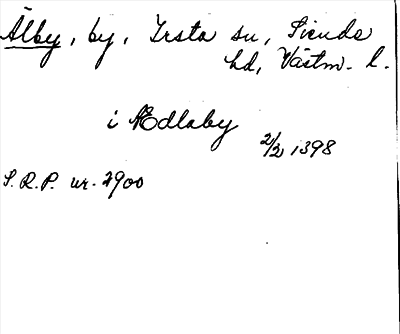 Älby, by, Irsta sn, Siende
hd, Västm. l.
i Ædlaby
2/2 1398
S.R.P. nr. 2900